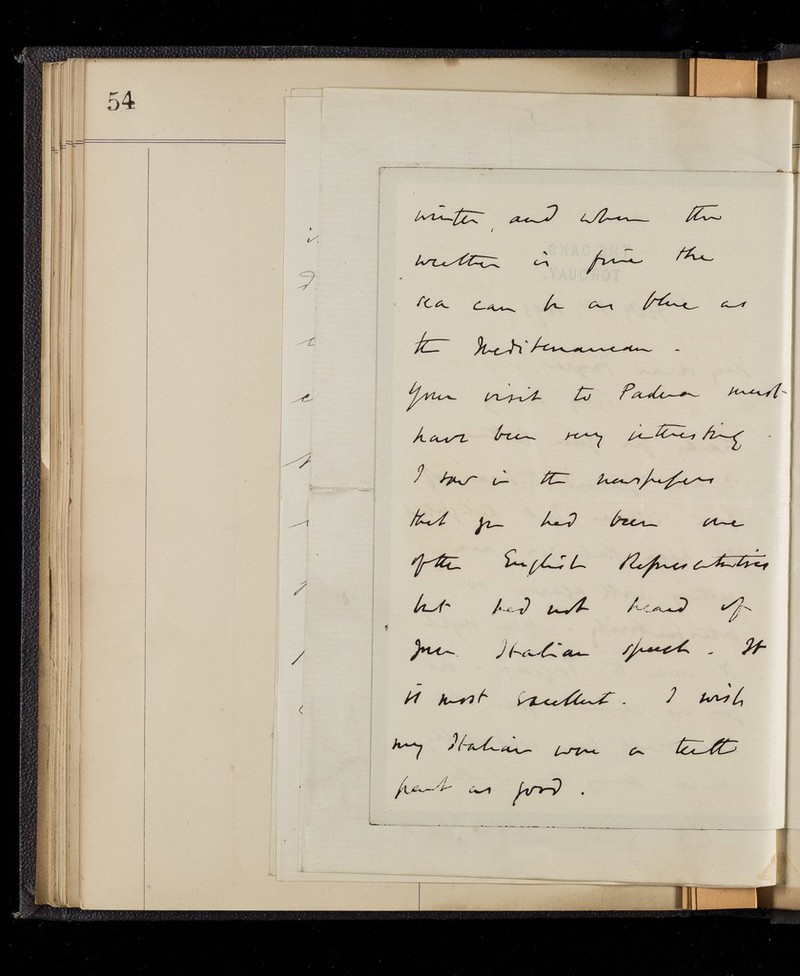 54
winter, and when the
weather is fine the
sea can be as blue as
the Mediterranean.
Your visit to Padua must
have been very interesting.
I saw in the newspapers
that you had been one
of the English Representatives
but had not heard of
your Italian speech. It
is most excellent. I wish
my Italian were a tenth
part as good.